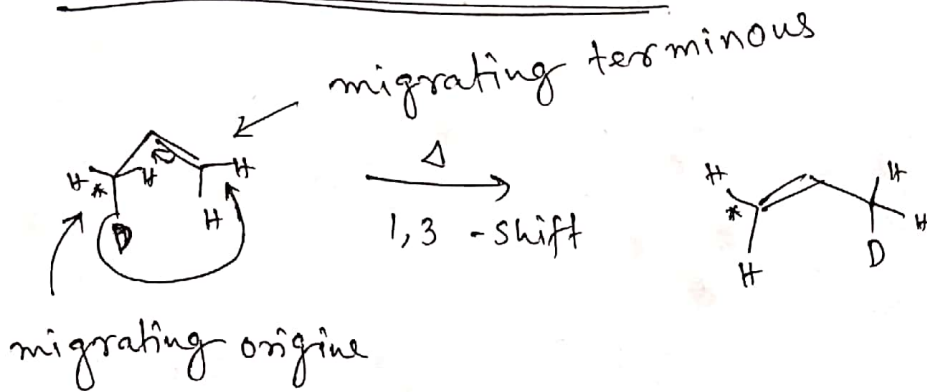 migrating terminous
H * H H H D
Δ
1,3 - Shift
H * H H H D
migrating origine